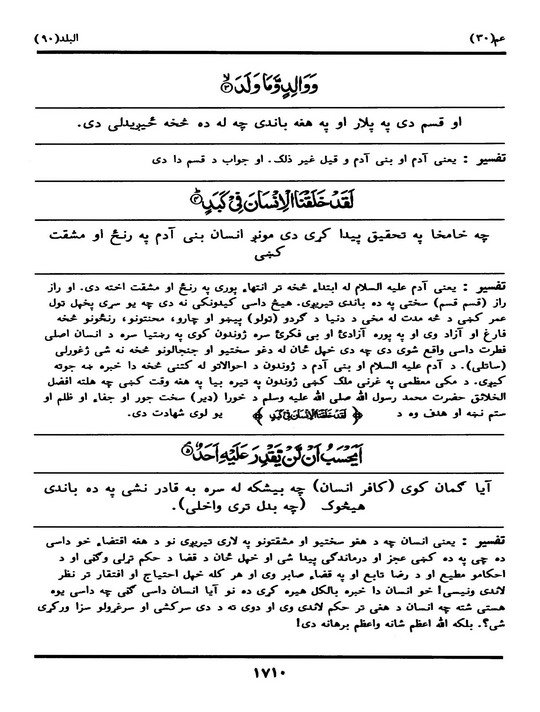 عم(٣٠) البلد(٩٠)
وَوَالِدٍ وَّمَا وَلَدَ ۙ﴿٣﴾
او قسم دی په پلار او په هغه باندی چه له ده څخه څیږیدلی دی.
تفسیر : یعنی آدم او بنی آدم و قیل غیر ذلک. او جواب د قسم دا دی
لَقَدْ خَلَقْنَا الْاِنْسَانَ فِیْ كَبَدٍ ؕ﴿٤﴾
چه خامخا په تحقیق پیدا کړی دی مونږ انسان بنی آدم په رنځ او مشقت
کښی
تفسیر : یعنی آدم علیه السلام له ابتداء څخه تر انتهاء پوری په رنځ او مشقت اخته دی. او راز
راز (قسم قسم) سختی په ده باندی تیریږی. هیڅ داسی کیدونکی نه دی چه یو سری پخپل تول
عمر کښی د څه مدت له مخی د دنیا د گردو (تولو) پیښو او چارو، محنتونو، رنځونو څخه
فارغ او آزاد وی او په پوره آزادئ او بی فکرئ سره ژوندون کوی په رښتیا سره د انسان اصلی
فطرت داسی واقع شوی دی چه دی خپل ځان له دغو سختیو او جنجالونو څخه نه شی ژغورلی
(ساتلی). د آدم علیه السلام او بنی آدم د ژوندون د احوالاتو له کتنی څخه دا خبره ښه جوته
کیږی. د مکی معظمی په غرنی ملک کښی ژوندون په تیره بیا په هغه وقت کښی چه هلته افضل
الخلائق حضرت محمد رسول الله صلی الله علیه وسلم د خورا (دیر) سخت جور او جفاء او ظلم او
ستم نښه او هدف وه د ﴿ لَقَدْ خَلَقْنَا الْاِنْسَانَ فِیْ كَبَدٍ ﴾ یو لوی شهادت دی.
اَیَحْسَبُ اَنْ لَّنْ یَّقْدِرَ عَلَیْهِ اَحَدٌ ۘ﴿٥﴾
آیا گمان کوی (کافر انسان) چه بیشکه له سره به قادر نشی په ده باندی
هیڅوک (چه بدل تری واخلی).
تفسیر : یعنی انسان چه د هغو سختیو او مشقتونو په لاری تیریږی نو د هغه اقتضاء خو داسی
ده چی په ده کښی عجز او درماندگی پیدا شی او خپل ځان د قضا د حکم تړلی وگڼی او د
احکامو مطیع او د رضا تابع او په قضاء صابر وی او هر کله خپل احتیاج او افتقار تر نظر
لاندی ونیسی! خو انسان دا خبره بالکل هیره کړی ده نو آیا انسان داسی گڼی چه داسی یوه
هستی شته چه انسان د هغی تر حکم لاندی وی او دوی ته د دی سرکشی او سرغړولو سزا ورکړی
شی؟. بلکه الله اعظم شانه واعظم برهانه دی!
١٧١٠